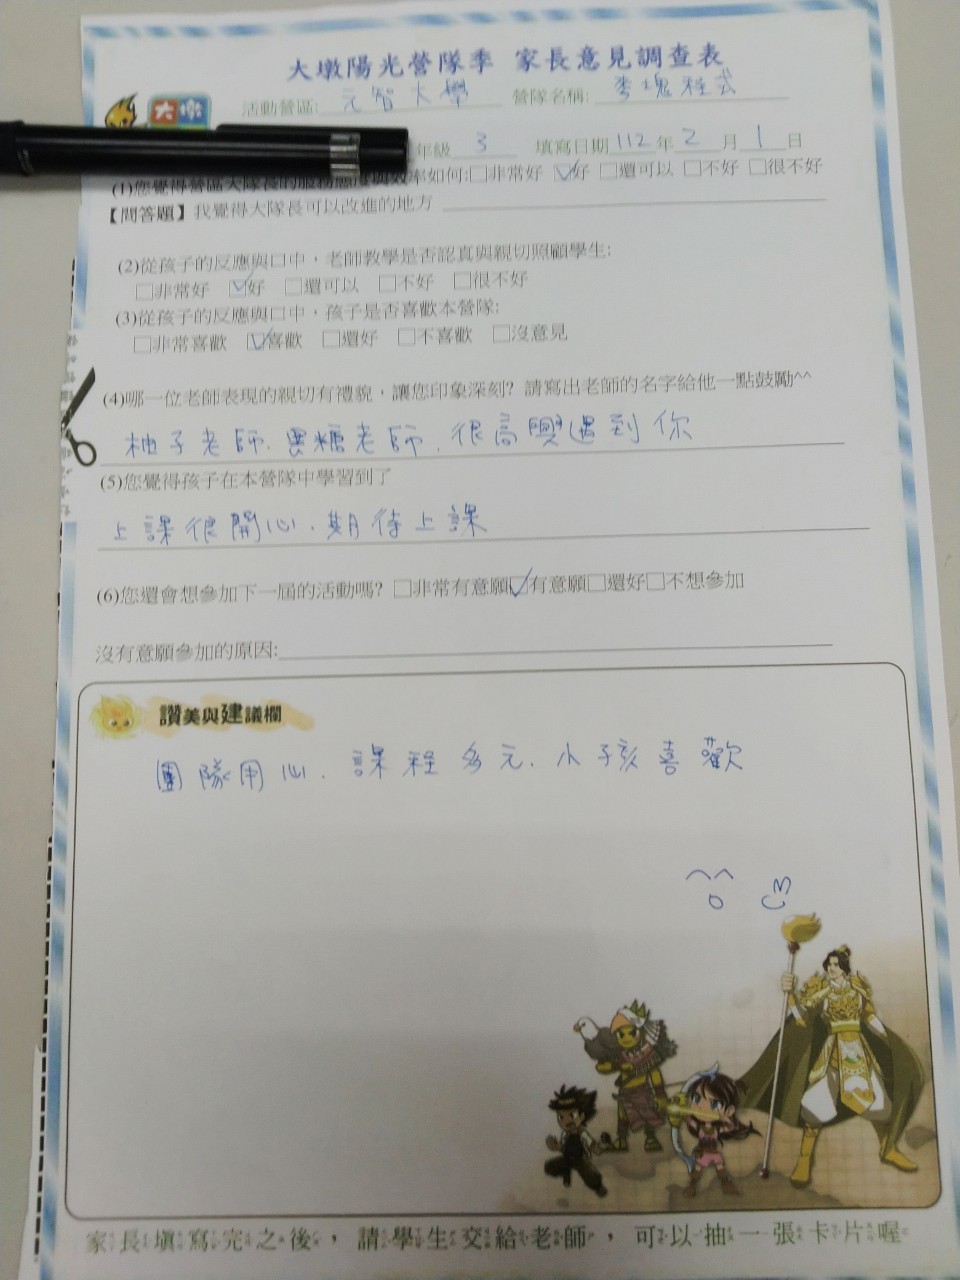 大墩陽光營隊季 家長意見調查表
活動營區: 元智大學 營隊名稱: 李塊程式
大墩
年級 3 填寫日期 112 年 2 月 1 日
(1)您覺得營區大隊長的服務態度與效率如何:□非常好 ☑好 □還可以 □不好 □很不好
【問答題】我覺得大隊長可以改進的地方
(2)從孩子的反應與口中，老師教學是否認真與親切照顧學生:
□非常好 ☑好 □還可以 □不好 □很不好
(3)從孩子的反應與口中，孩子是否喜歡本營隊:
□非常喜歡 ☑喜歡 □還好 □不喜歡 □沒意見
(4)哪一位老師表現的親切有禮貌，讓您印象深刻? 請寫出老師的名字給他一點鼓勵^^
柚子老師.黑糖老師.很高興遇到你
(5)您覺得孩子在本營隊中學習到了
上課很開心.期待上課
(6)您還會想參加下一屆的活動嗎? □非常有意願☑有意願□還好□不想參加
沒有意願參加的原因:
讚美與建議欄
團隊用心.課程多元.小孩喜歡
家長填寫完之後，請學生交給老師，可以抽一張卡片喔